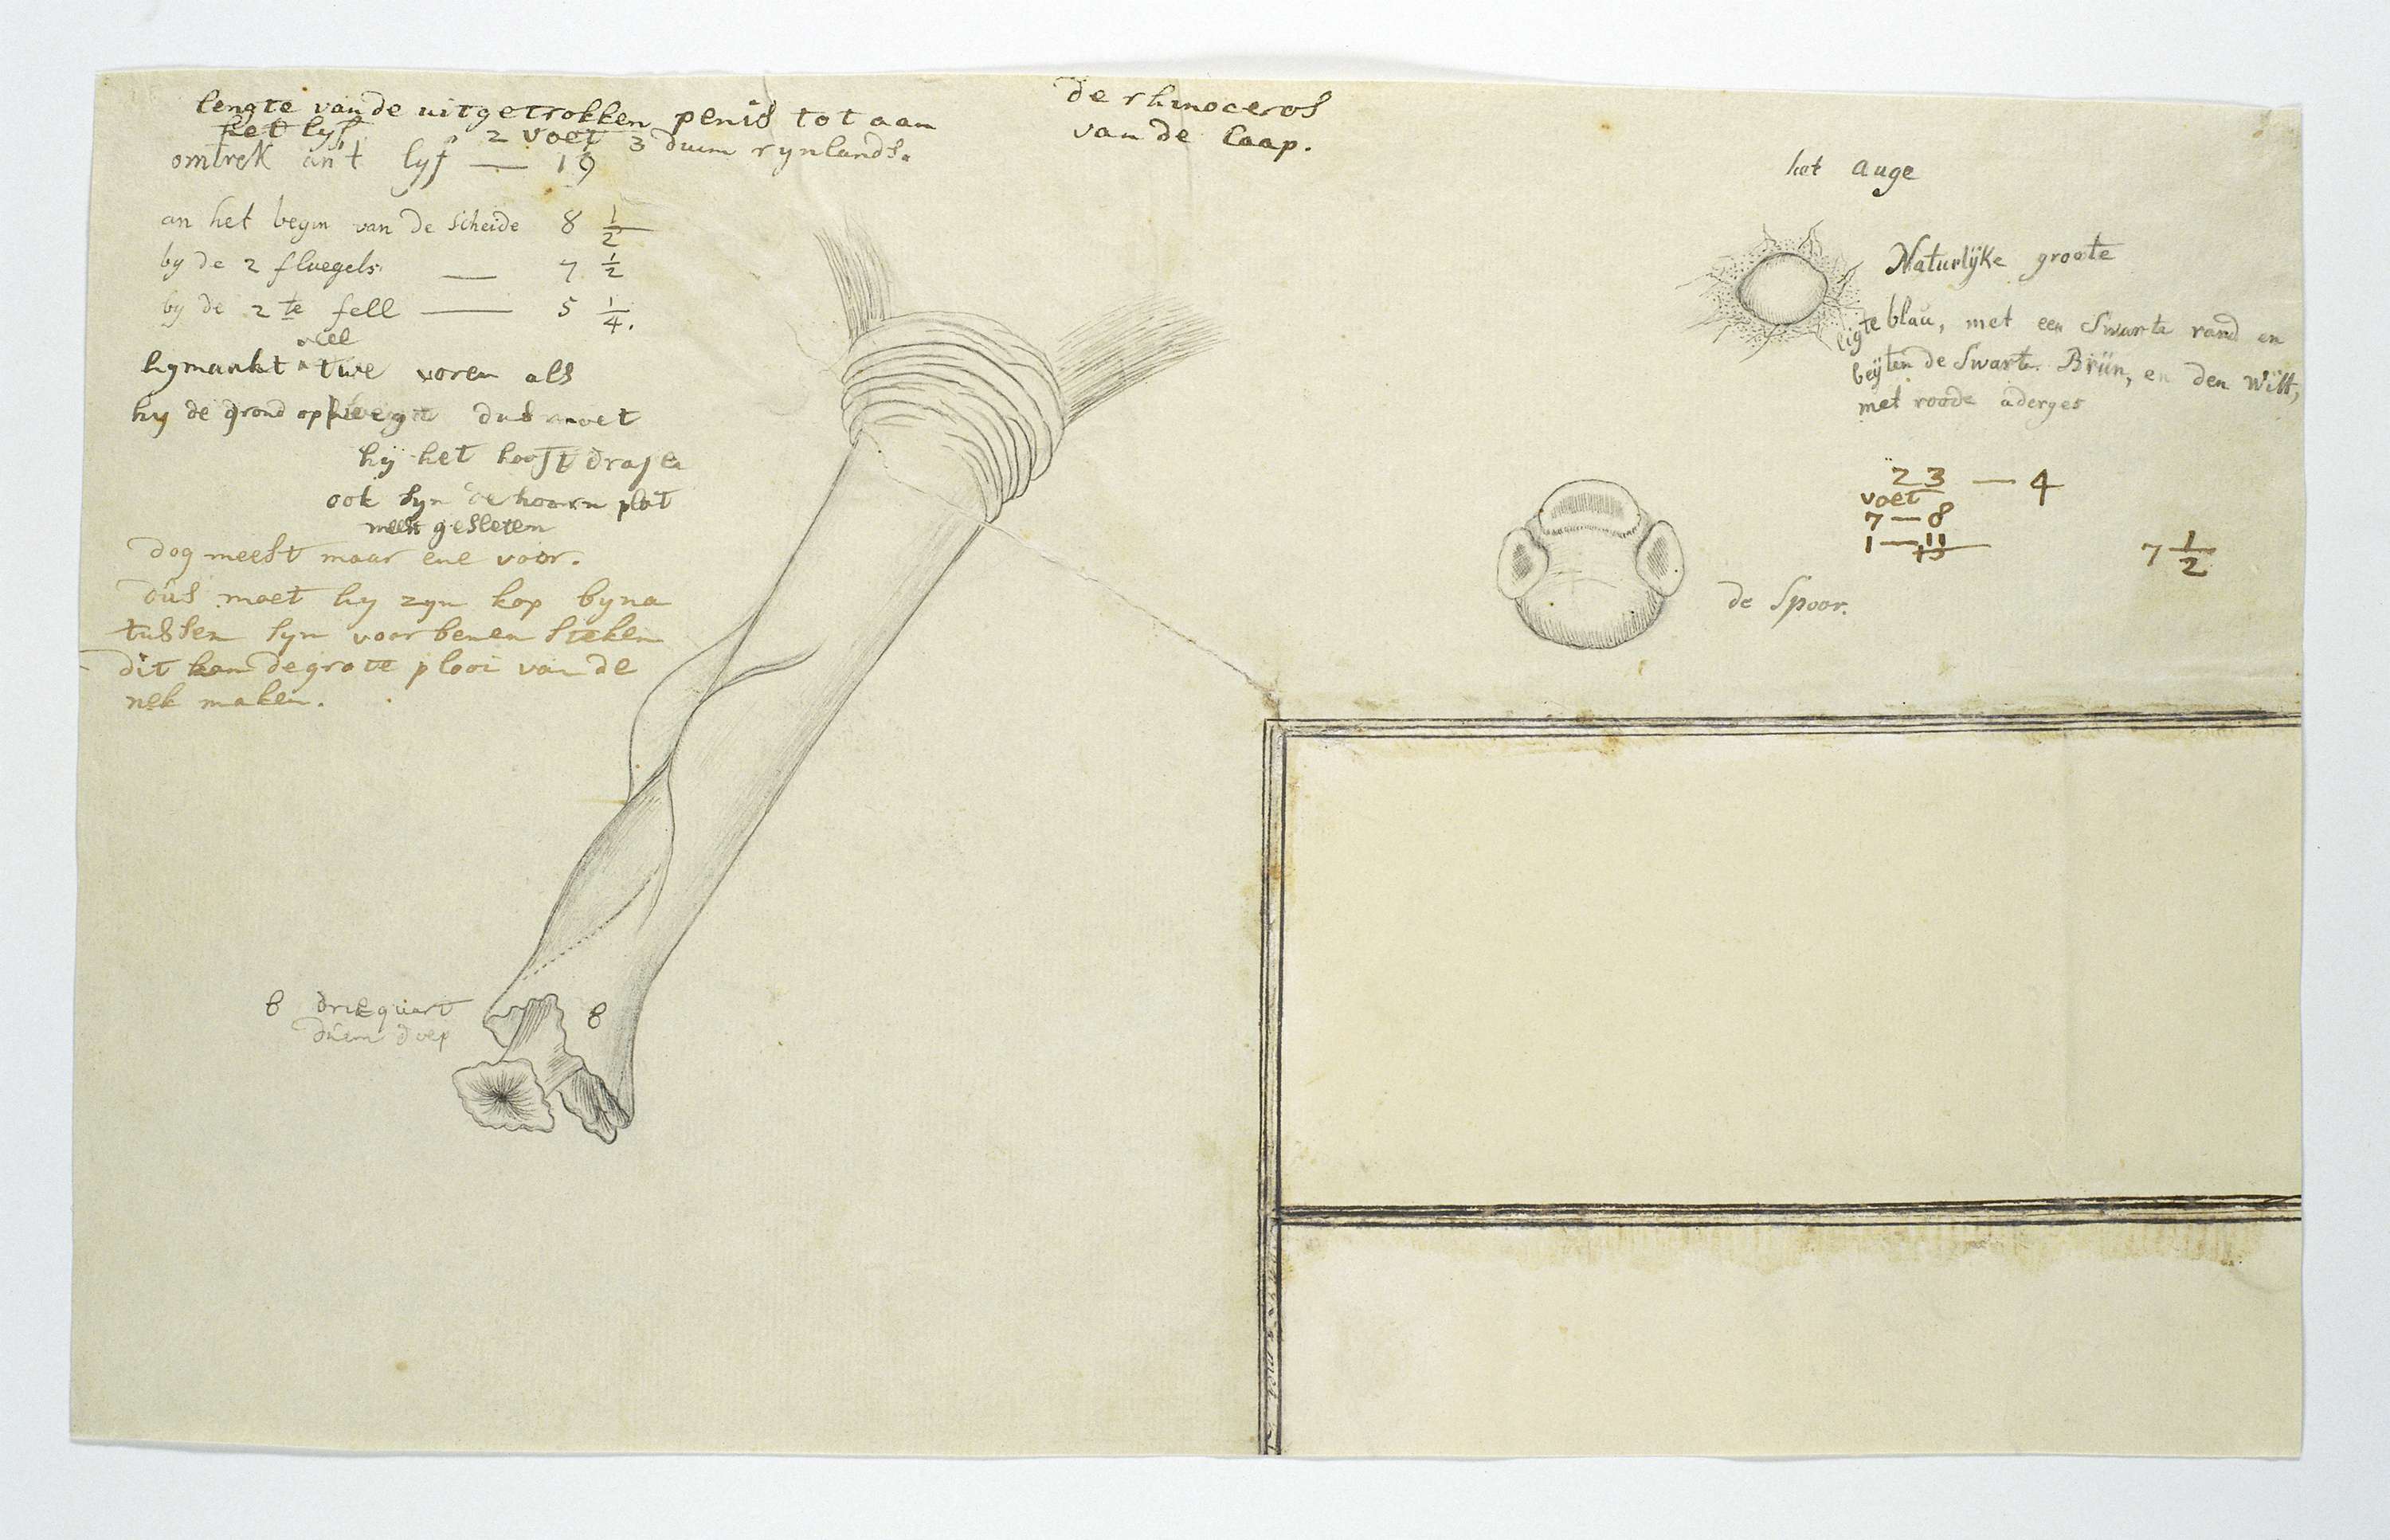 lengte van de uitgetrokken penis tot aan
het lyf 2 voet 3 duim rynlands.
omtrek an't lyf — 19
an het begin van de scheide 8 1/2
by de 2 fluegels — 7 1/2
by de 2te fell — 5 1/4.
veel
hy maekt twe voren als
hy de grond dus moet
hij het hooft drajen
ook syn de hoorn plat
meest gesleten
dog meest maar ene voor.
dus moet hy zyn kop byna
tussen syn voor benen steken
dit kan de grote plooi van de
nek maken.
de rhinoceros
van de Caap.
het auge
Naturlijke groote
ligte blau, met een Swarte rand en
beyten de Swarte Brün, en den Witt,
met roode aderges
23 — 4
voet
7 — 8
1 — 11
7 1/2
de Spoor.
B driequart
duem diep
B